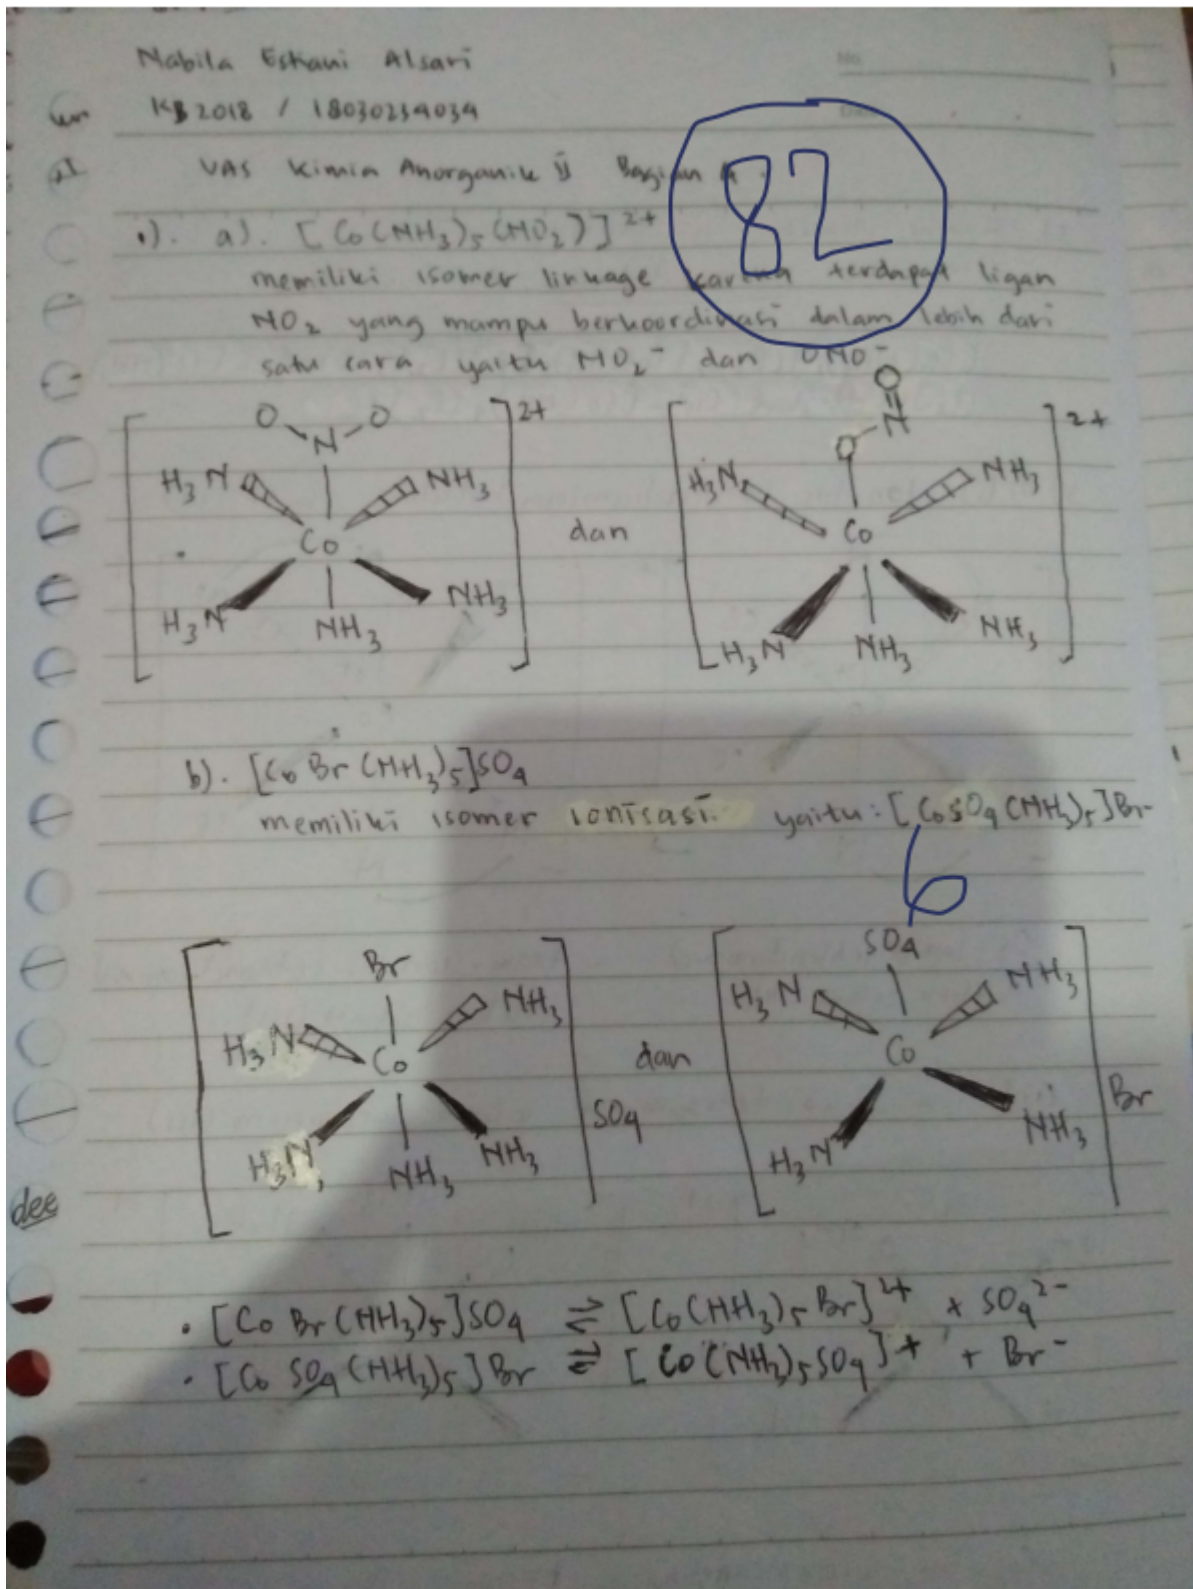 No.
Nabila Eskani Alsari
KB 2018 / 18030234034
UAS Kimia Anorganik II Bagian A.
82
1). a). [Co(NH3)5(NO2)]2+
memiliki isomer linkage karena terdapat ligan
NO2 yang mampu berkoordinasi dalam lebih dari
satu cara yaitu NO2- dan ONO-
O N O 2+ O N O 2+
H3N NH3 H3N NH3
Co dan Co
H3N NH3 NH3 H3N NH3 NH3
b). [Co Br (NH3)5]SO4
memiliki isomer ionisasi. yaitu : [CoSO4(NH3)5]Br-
6
Br SO4
H3N NH3 H3N NH3
Co dan Co
SO4 Br
H3N NH3 NH3 H3N NH3
dee
• [Co Br (NH3)5]SO4 ⇌ [Co(NH3)5 Br]2+ + SO4 2-
• [Co SO4 (NH3)5] Br ⇌ [Co (NH3)5SO4]+ + Br-